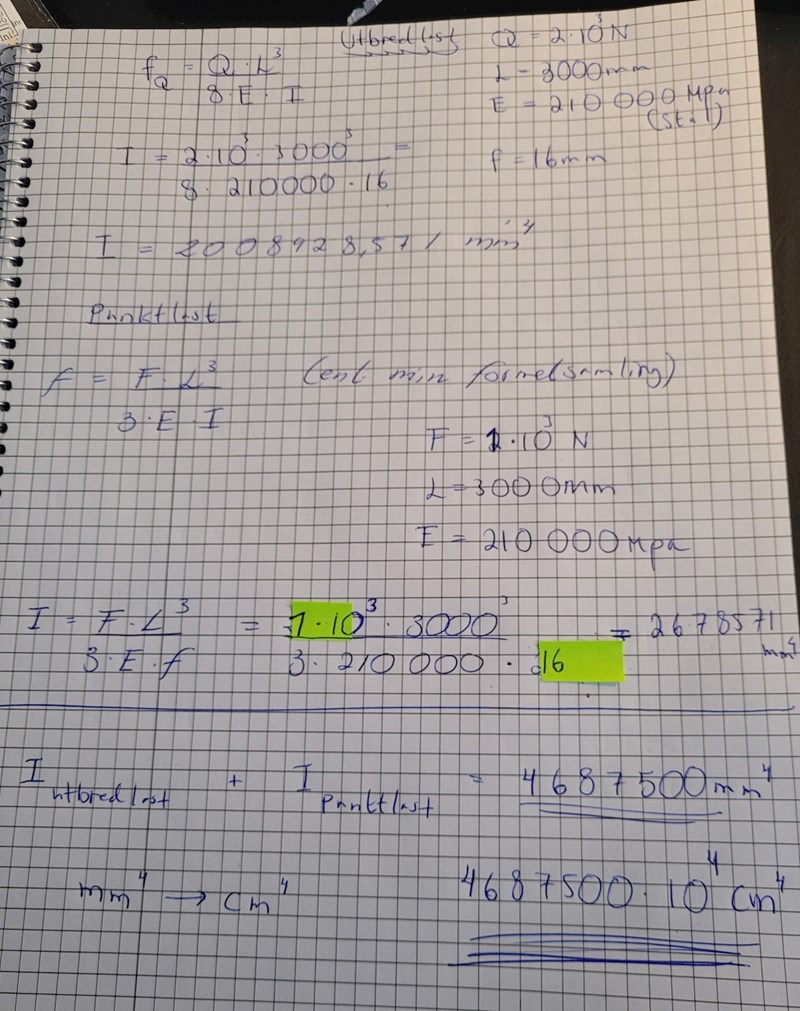 Utbred last Q = 2·10³ N
f_Q = Q·L³ / 8·E·I
L = 3000mm
E = 210 000 Mpa
(Stål)
I = 2·10³·3000³ / 8·210000·16 =
f = 16mm
I = 2008928,571 mm⁴
Punktlast
f = F·L³ / 3·E·I (enl min formelsamling)
F = 1·10³ N
L = 3000mm
E = 210 000 Mpa
I = F·L³ / 3·E·f = 1·10³·3000³ / 3·210 000·16 = 2678571 mm⁴
I utbred last + I Punktlast = 4687500 mm⁴
mm⁴ → cm⁴ 4687500·10⁴ cm⁴